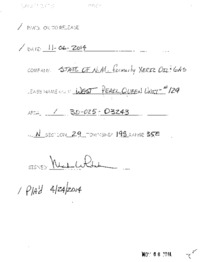 / DATE 11-06-2014
COMPANY STATE OF N.M. formerly XERIC OIL & GAS
WEST PEARL QUEEN UNIT #129
API# / 30-025-03243
N SECTION 29 TOWNSHIP 19S RANGE 35E
/ P/A'd 4/24/2014